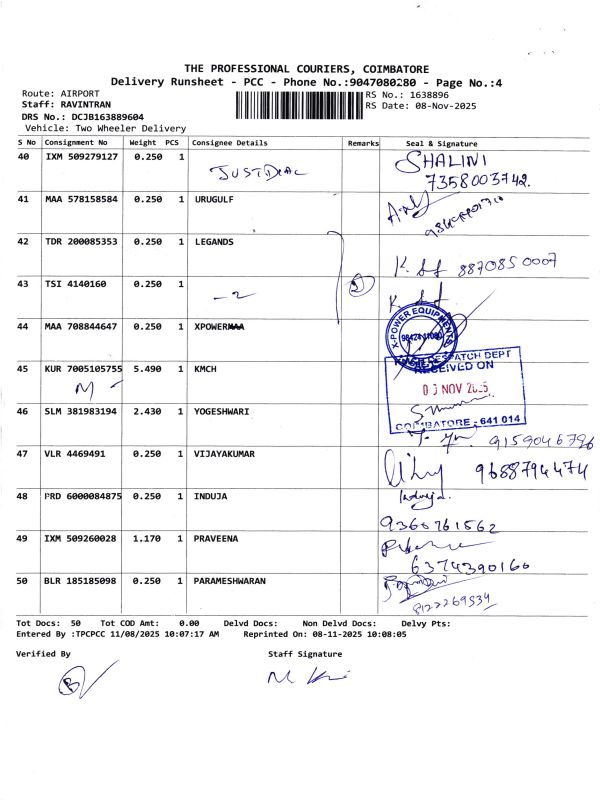 THE PROFESSIONAL COURIERS, COIMBATORE
Delivery Runsheet - PCC - Phone No.:9047080280 - Page No.:4
Route: AIRPORT RS No.: 1638896
Staff: RAVINTRAN RS Date: 08-Nov-2025
DRS No.: DCJB163889604
Vehicle: Two Wheeler Delivery
S No Consignment No Weight PCS Consignee Details Remarks Seal & Signature
40 IXM 509279127 0.250 1 JUSTDIAL SHALINI
7358003742.
41 MAA 578158584 0.250 1 URUGULF
42 TDR 200085353 0.250 1 LEGANDS 8870850007
43 TSI 4140160 0.250 1 -2
44 MAA 708844647 0.250 1 XPOWERMAA X-POWER EQUIPMENTS
45 KUR 7005105755 5.490 1 KMCH DESPATCH DEPT
RECEIVED ON
NOV
46 SLM 381983194 2.430 1 YOGESHWARI COIMBATORE - 641 014
9159046796
47 VLR 4469491 0.250 1 VIJAYAKUMAR 9688794474
48 PRD 6000084875 0.250 1 INDUJA Induja.
9360761562
49 IXM 509260028 1.170 1 PRAVEENA
6374390160
50 BLR 185185098 0.250 1 PARAMESHWARAN
8122269534
Tot Docs: 50 Tot COD Amt: 0.00 Delvd Docs: Non Delvd Docs: Delvy Pts:
Entered By :TPCPCC 11/08/2025 10:07:17 AM Reprinted On: 08-11-2025 10:08:05
Verified By Staff Signature